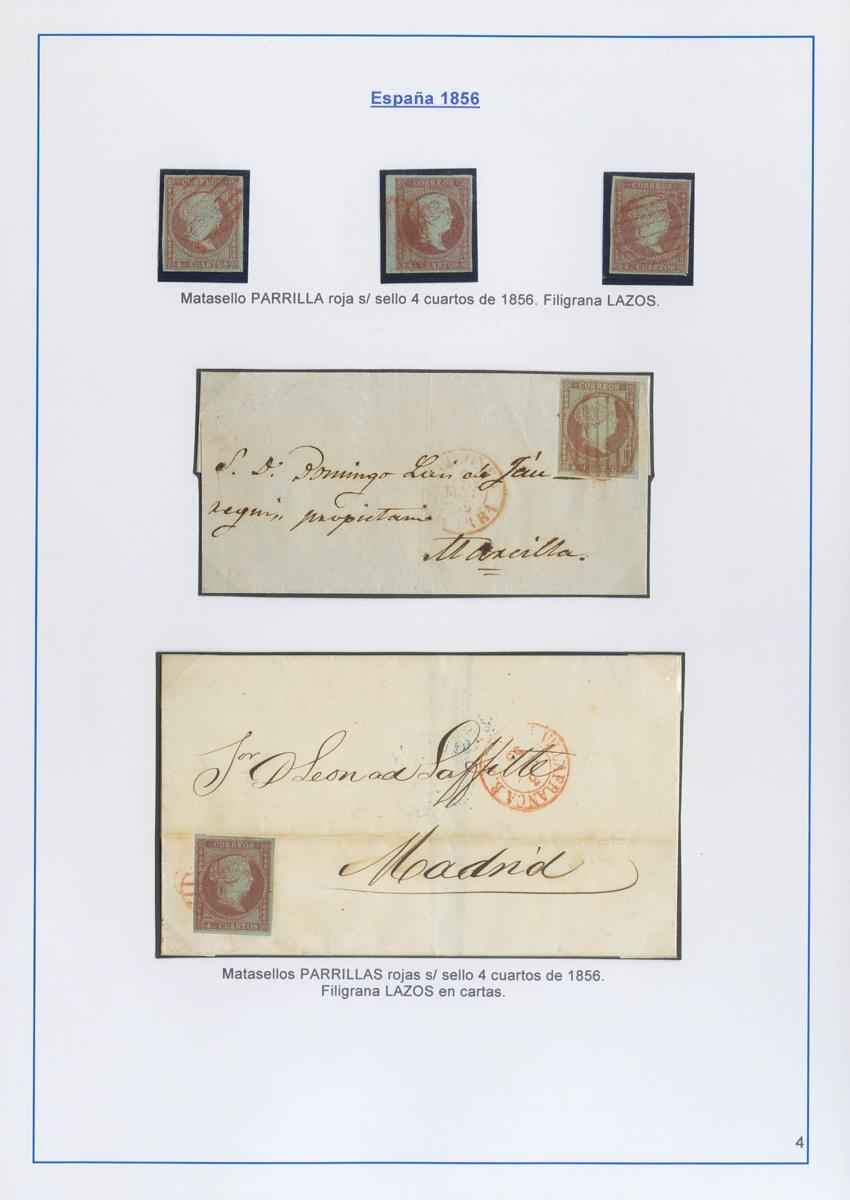 España 1856
CUARTOS
4 CUARTOS
CORREOS
4 CUARTOS
CORREOS
4 CUARTOS
Matasello PARRILLA roja s/ sello 4 cuartos de 1856. Filigrana LAZOS.
CORREOS
4 CUARTOS
S. Dn. Domingo Luis de Jáu-
regui, propietario
Marcilla.
VILLAFRANCA B.
Sor D Leonad Laffitte
Madrid
CORREOS
4 CUARTOS
Matasellos PARRILLAS rojas s/ sello 4 cuartos de 1856.
Filigrana LAZOS en cartas.
4